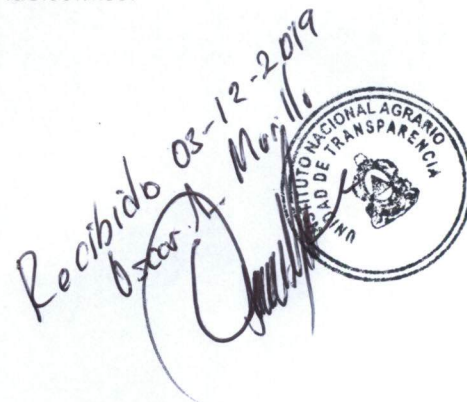 Recibido 03-12-2019
Oscar A. Murillo
INSTITUTO NACIONAL AGRARIO
UNIDAD DE TRANSPARENCIA